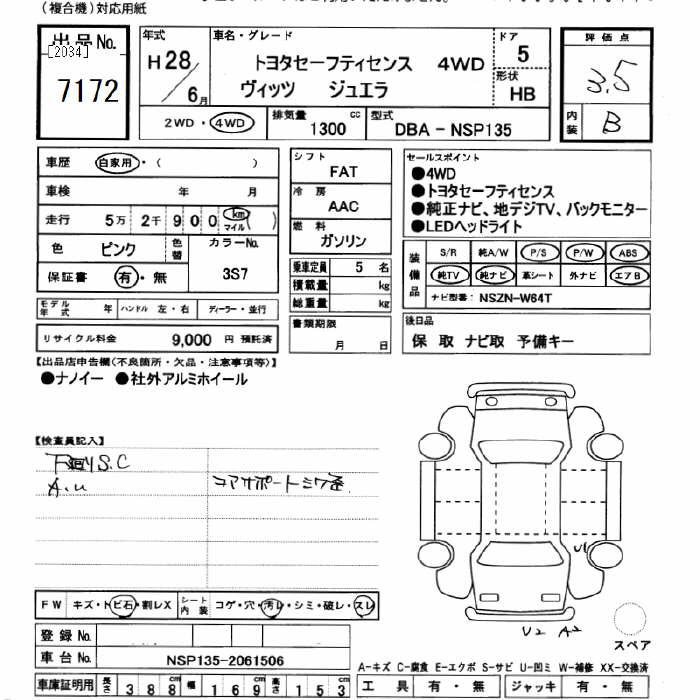 (複合機)対応用紙
出品No.
[2034]
7172
年式
H28/6月
車名・グレード
トヨタセーフティセンス 4WD
ヴィッツ ジュエラ
ドア
5
形状
HB
評価点
3.5
内装
B
2WD・4WD
排気量
1300 cc
型式
DBA-NSP135
車歴 自家用・( )
車検 年 月
走行 5万 2千 9 0 0 km マイル ( )
色 ピンク 色替 カラーNo. 3S7
保証書 有・無
モデル年式 年 ハンドル 左・右 ディーラー・並行
リサイクル料金 9,000 円 預託済
シフト
FAT
冷房
AAC
燃料
ガソリン
乗車定員 5 名
積載量 kg
総重量 kg
書類期限
月 日
セールスポイント
●4WD
●トヨタセーフティセンス
●純正ナビ、地デジTV、バックモニター
●LEDヘッドライト
装備品
S/R 純A/W P/S P/W ABS
純TV 純ナビ 革シート 外ナビ エアB
ナビ型番: NSZN-W64T
後日品
保 取 ナビ取 予備キー
【出品店申告欄(不良箇所・欠品・注意事項等)】
●ナノイー ●社外アルミホイール
【検査員記入】
下廻りS.C
A.U
コアサポートミワ歪
U1
U2 A2
スペア
FW キズ・トビ石・割レX シート内装 コゲ・穴・汚レ・シミ・破レ・スレ
登録No.
車台No. NSP135-2061506
車庫証明用 長さ 388cm 幅 169cm 高さ 153cm
A-キズ C-腐食 E-エクボ S-サビ U-凹ミ W-補修 XX-交換済
工具 有・無 ジャッキ 有・無